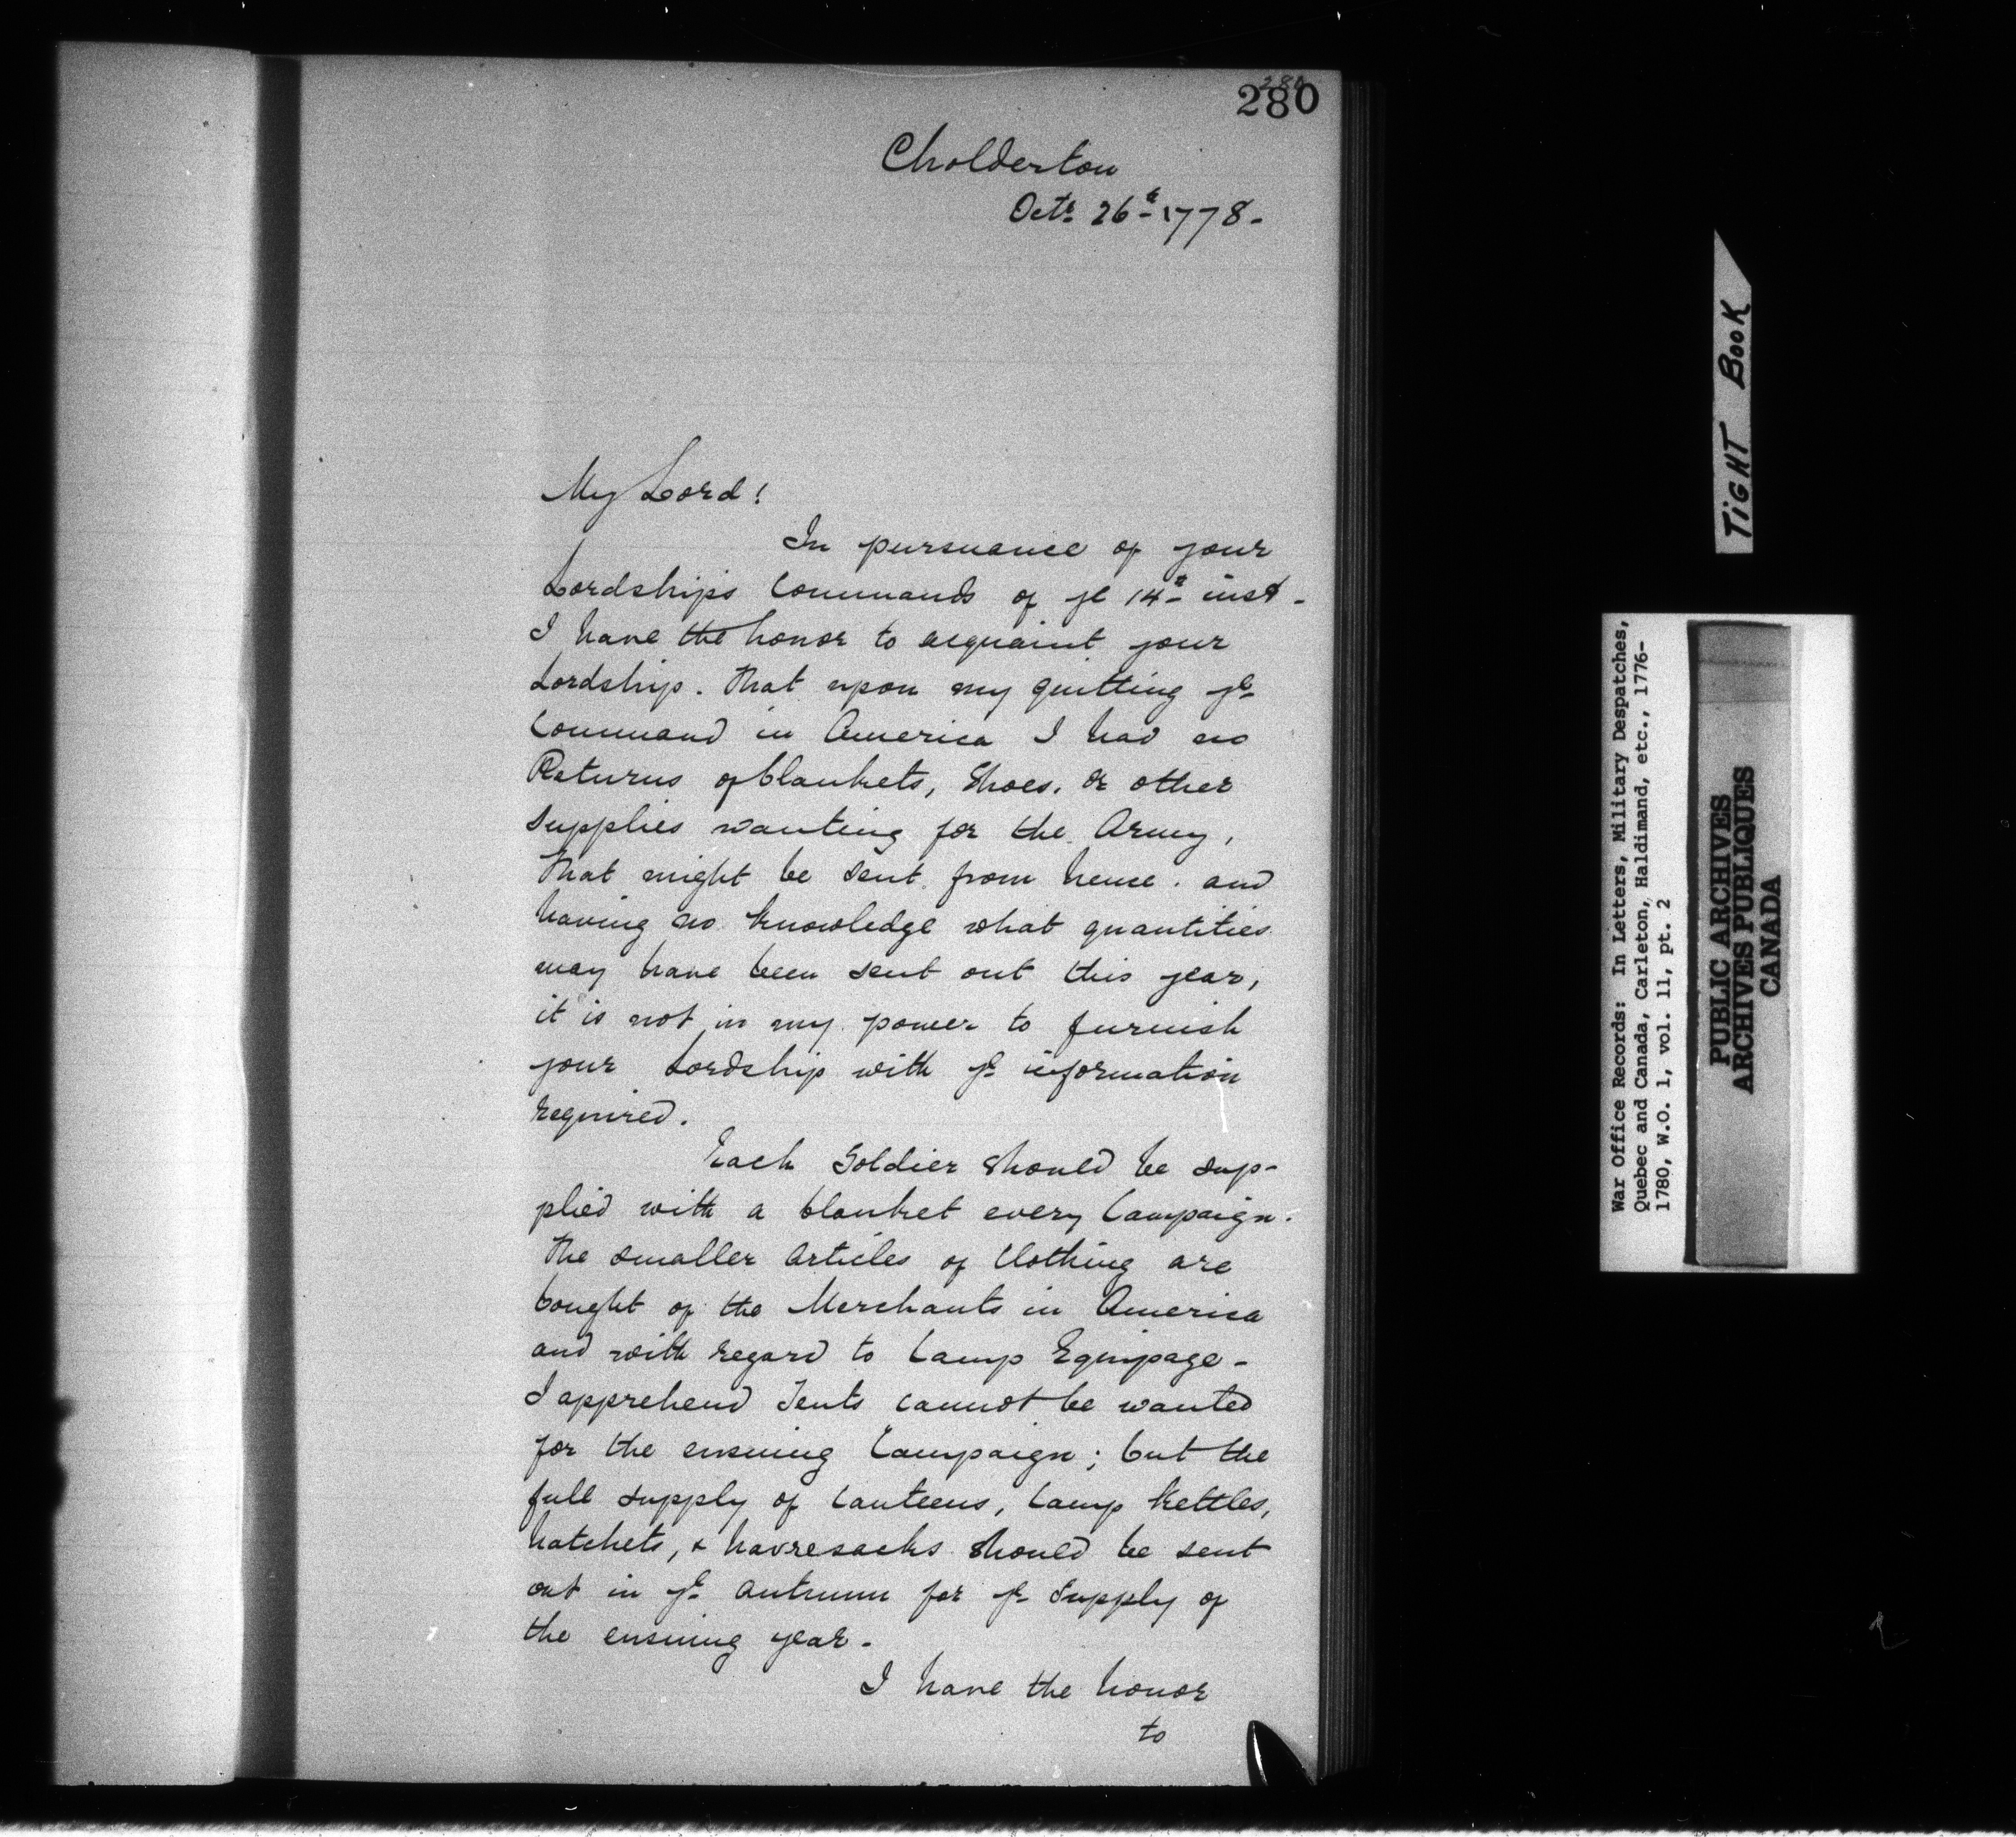 280
280
Cholderton
Octr. 26th 1778-
My Lord!
In pursuance of your
Lordships Commands of ye 14th inst-
I have the honor to acquaint your
Lordship. That upon my quitting ye
Command in America I had no
Returns of blankets, Shoes. or other
Supplies wanting for the Army,
That might be sent from hence. and
having no knowledge what quantities
may have been sent out this year,
it is not in my power to furnish
your Lordship with ye information
required.
Each Soldier should be sup-
plied with a blanket every Campaign.
The smaller articles of Clothing are
bought of the Merchants in America
and with regard to Camp Equipage-
I apprehend Tents cannot be wanted
for the ensuing Campaign; but the
full supply of Canteens, Camp Kettles,
hatchets, & havresacks should be sent
out in ye Autumn for ye Supply of
the ensuing year-
I have the honor
to
TIGHT BOOK
War Office Records: In Letters, Military Despatches,
Quebec and Canada, Carleton, Haldimand, etc., 1776-
1780, W.O. 1, vol. 11, pt. 2
PUBLIC ARCHIVES
ARCHIVES PUBLIQUES
CANADA